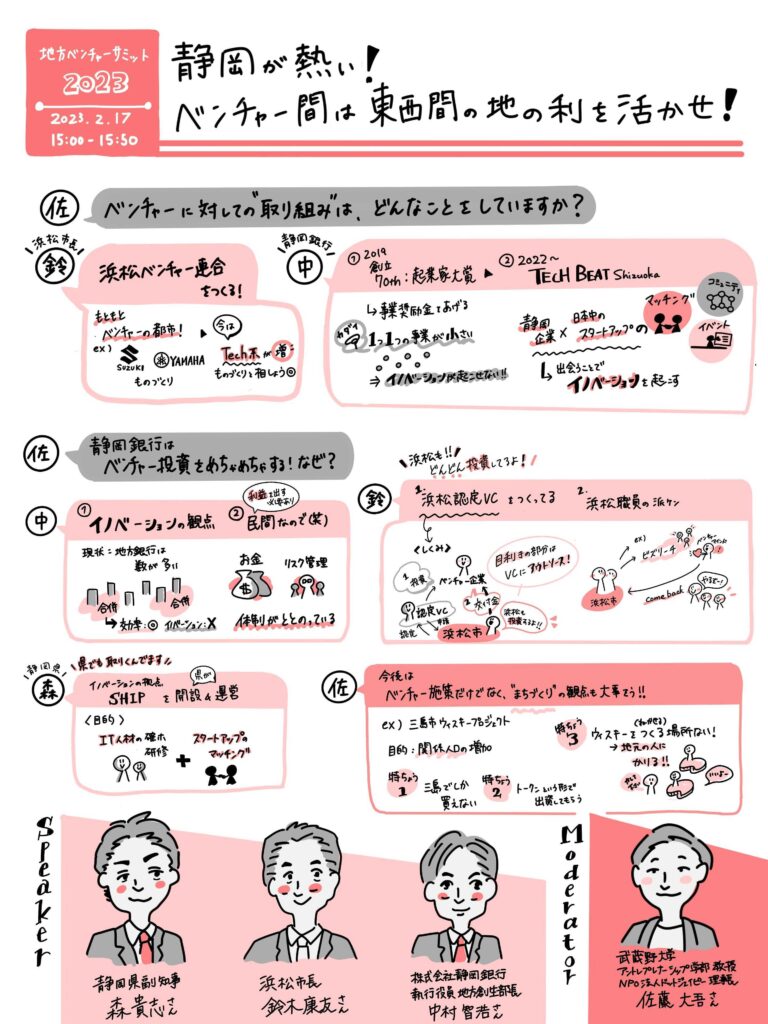 地方ベンチャーサミット
2023
2023.2.17
15:00-15:50
静岡が熱い!
ベンチャー間は東西間の地の利を活かせ!
佐
ベンチャーに対しての"取り組み"は、どんなことをしていますか?
浜松市長
鈴
浜松ベンチャー連合
をつくる!
もともと
ベンチャーの都市!
今は
ex)
SUZUKI
YAMAHA
Tech系が増
ものづくり
ものづくりと相しょう◎
静岡銀行
中
① 2019
創立
70th:起業家大賞
② 2022〜
TECH BEAT Shizuoka
↳事業奨励金をあげる
カダイ
1つ1つの事業が小さい
⇒イノベーションが起こせない!!
静岡
企業
×
日本中の
スタートアップの
マッチング
コミュニティ
イベント
↳出会うことで
イノベーションを起こす
佐
静岡銀行は
ベンチャー投資をめちゃめちゃする!なぜ?
中
①
イノベーションの観点
②
利益を出す
必要あり
民間なので(笑)
現状:地方銀行は
数が多い
合併
合併
↳効率:◎ イノベーション:×
お金
リスク管理
体制がととのっている
浜松も!!
どんどん投資してるよ!
鈴
1.
浜松認定VCをつくってる
2.
浜松職員の派ケン
〈しくみ〉
目利きの部分は
VCにアウトソース!
1 投資
ベンチャー企業
認定VC
2 交付金
認定
申請
浜松市
浜松も
投資するよ!!
ex)
ビズリーチ
ベンチャー
マインド
浜松市
come back
やるぞー!
静岡県
森
県でも取りくんでます
イノベーションの視点
県が
SHIP を開設&運営
〈目的〉
IT人材の確ホ
研修
+
スタートアップの
マッチング
佐
今後は
ベンチャー施策だけでなく、"まちづくり"の観点も大事そう!!
ex) 三島市ウィスキープロジェクト
目的:関係人口の増加
特ちょう
1
三島でしか
買えない
特ちょう
2
トークンという形で
出資してもらう
特ちょう
3
(ねかせる)
ウィスキーをつくる場所ない!
→地元の人に
かりる!!
いいよー
Speaker
静岡県副知事
森 貴志さん
浜松市長
鈴木康友さん
株式会社静岡銀行
執行役員 地方創生部長
中村 智浩さん
Moderator
武蔵野大学
アントレプレナーシップ学部 教授
NPO法人ドットジェイピー 理事長
佐藤 大吾さん